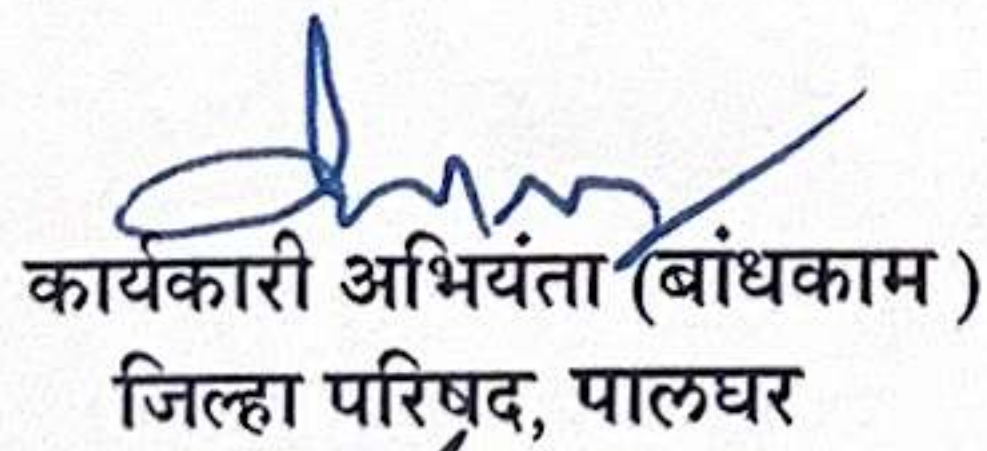 कार्यकारी अभियंता (बांधकाम )
जिल्हा परिषद, पालघर